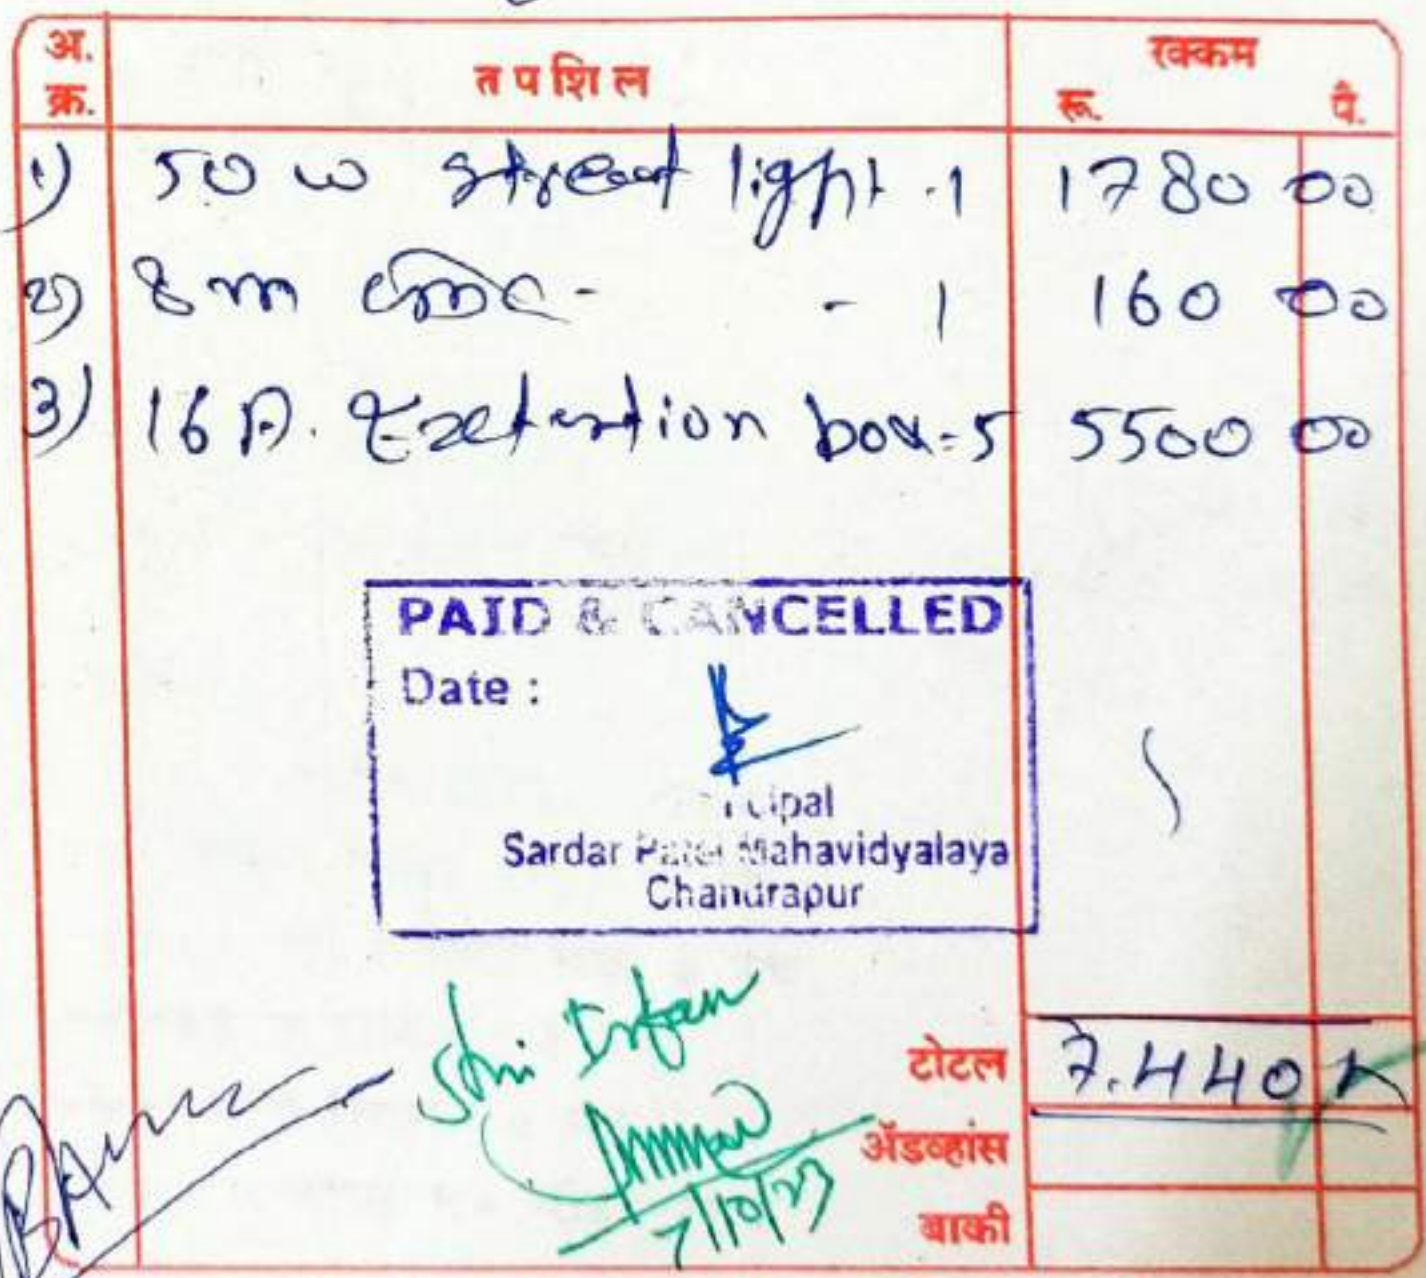 अ. क्र. तपशिल रक्कम रू. पै.
1) 50 w streat light - 1 1780 00
2) 8 m - 1 160 00
3) 16 A. Extention box = 5 5500 00
PAID & CANCELLED
Date :
Principal
Sardar Patel Mahavidyalaya
Chandrapur
Shri Irfan
टोटल 7.440
7/10/23
ॲडव्हांस
बाकी